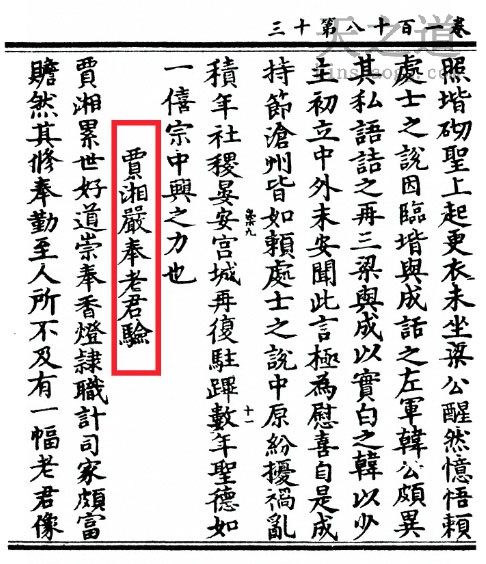 卷一百十八第十三
天之道
照堦砌聖上起更衣未坐梁公醒然憶悟賴
處士之說因臨堦與成話之左軍韓公頗異
其私語詰之再三梁與成以實白之韓以少
主初立中外未安聞此言極為慰喜自是成
持節滄州皆如賴處士之說中原紛擾禍亂
九
十一
積年社稷晏安宮城再復駐蹕數年聖德如
一僖宗中興之力也
賈湘嚴奉老君驗
賈湘累世好道崇奉香燈隷職計司家頗富
贍然其修奉勤至人所不及有一幅老君像